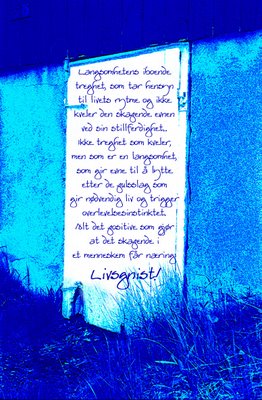 Langsomhetens iboende
treghet, som tar hensyn
til livets rytme og ikke
kveler den skapende evnen
ved sin stillferdighet,.
ikke treghet som kveler,
men som er en langsomhet,
som gir evne til å lytte
etter de pulsslag som
gir nødvendig liv og trigger
overlevelsesinstinktet.
Alt det positive som gjør
at det skapende i
et menneskem får næring;
Livsgnist!